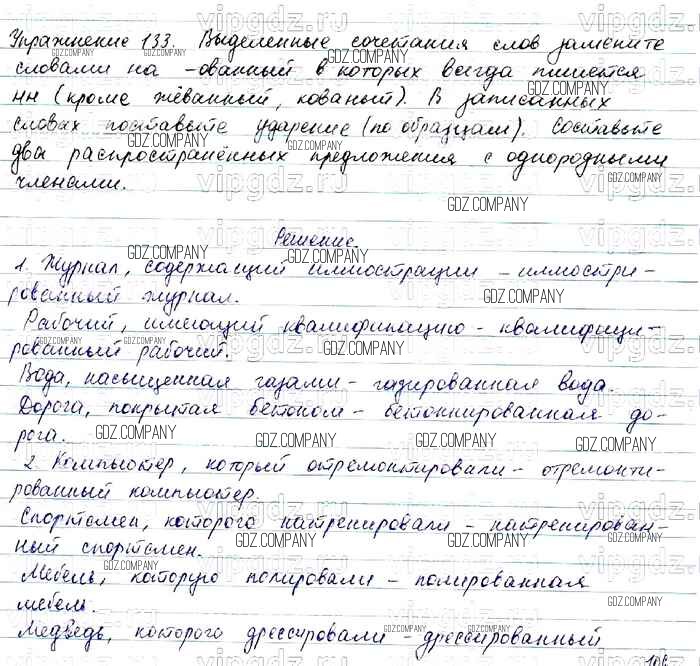 Упражнение 133. Выделенные сочетания слов замените
словами на -ованный в которых всегда пишется
нн (кроме жёванный, кованый). В записанных
словах поставьте ударение (по образцам). Составьте
два распространённых предложения с однородными
членами.
Решение.
1. Журнал, содержащий иллюстрации - иллюстри-
рованный журнал.
Рабочий, имеющий квалификацию - квалифици-
рованный рабочий.
Вода, насыщенная газами - газированная вода.
Дорога, покрытая бетоном - бетоннированная до-
рога.
2. Компьютер, который отремонтировали - отремонти-
рованный компьютер.
Спортсмен, которого натренировали - натренирован-
ный спортсмен.
Мебель, которую полировали - полированная
мебель.
Медведь, которого дрессировали - дрессированный